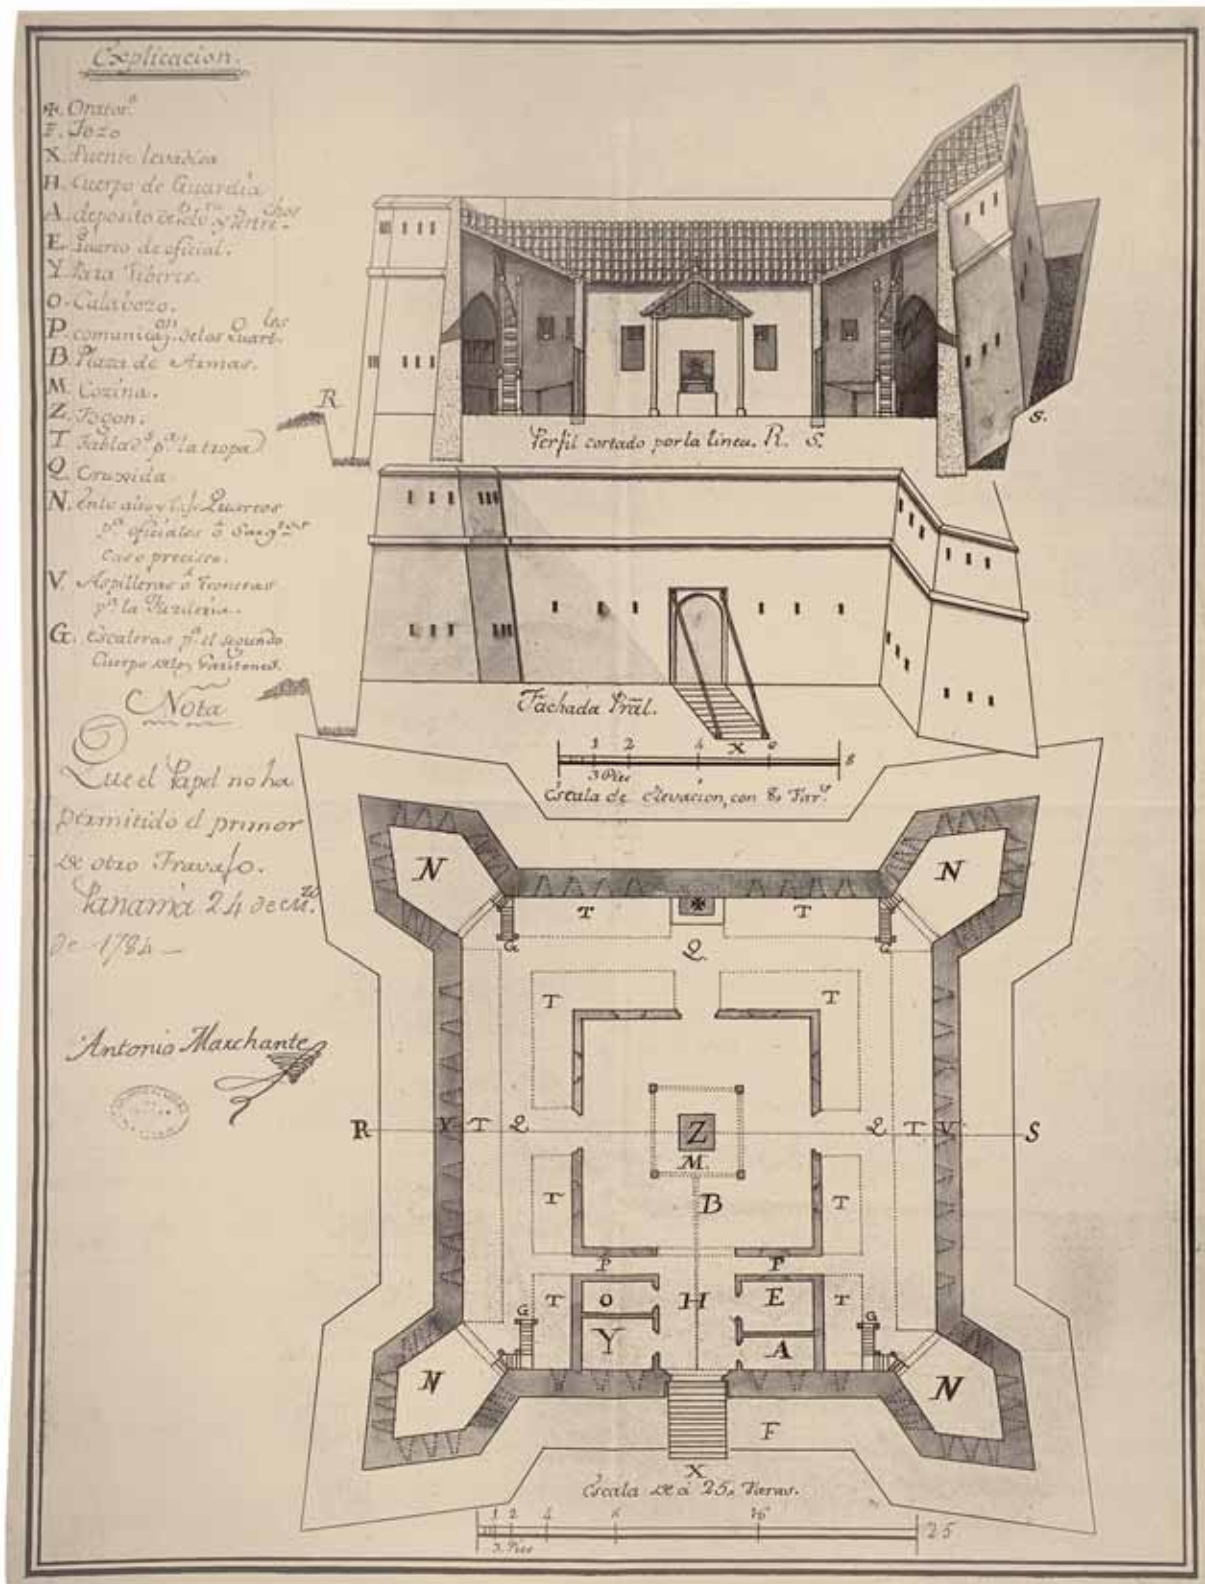 Explicacion.
✠. Orator.º
F. Fozo
X. Puente levadiza
H. Cuerpo de Guardia
A. deposito de
E. Quarto de oficial.
Y. Para Viberes.
O. Calabozo.
P. comunicaon. de los Quartles
B. Plaza de Armas.
M. Cozina.
Z. Fogon.
T. Tablados pa. la tropa
Q. Cruxida
N. Quartos
pa. oficiales ó
caso preciso.
V. Aspilleras ó troneras
pa. la Fuzileria.
G. escaleras pa. el segundo
Cuerpo de los Garitones.
Nota
Que el Papel no ha
permitido el primor
de otro Travajo.
Panamá 24 de
de 1784
Antonio Marchante
R
S.
Perfil cortado por la linea. R. S.
Fachada Pral.
1 2 4 X 8
3 Pies
Escala de elevacion, con 8, Vars.
N N
T ✠ T
G Q G
T T
R V T Q Z Q T V S
M.
B
T T
P P
T O H E T
G G
Y A
N N
F
X
Escala de á 25, Varas.
1 2 4 25
3. Pies